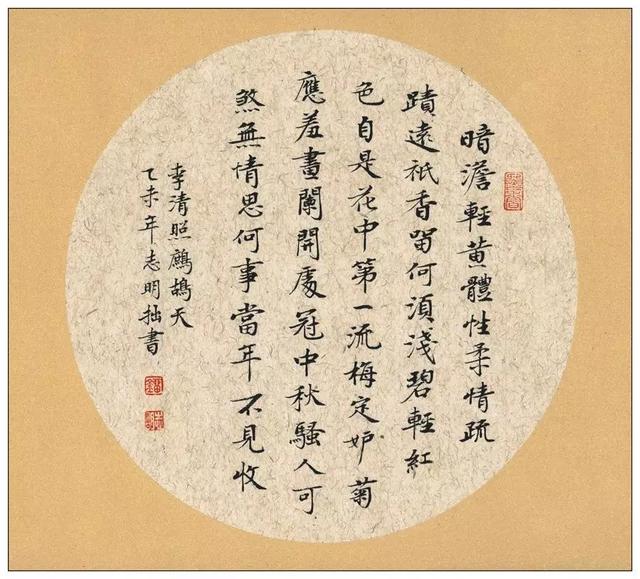 暗澹輕黄體性柔情疏
蹟遠祇香留何須淺碧輕紅
色自是花中第一流梅定妒菊
應羞畫闌開處冠中秋騷人可
煞無情思何事當年不見收
李清照鷓鴣天
乙未年志明拙書